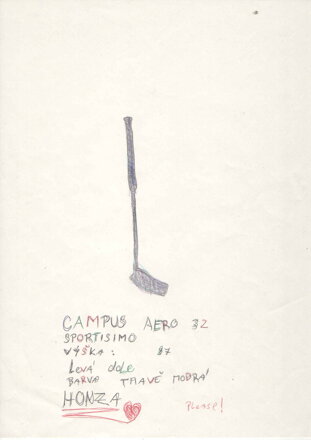 CAMPUS AERO 32
SPORTISIMO
VÝŠKA: 87
Levá dole
BARVA TMAVĚ MODRÁ
HONZA
PLEASE!